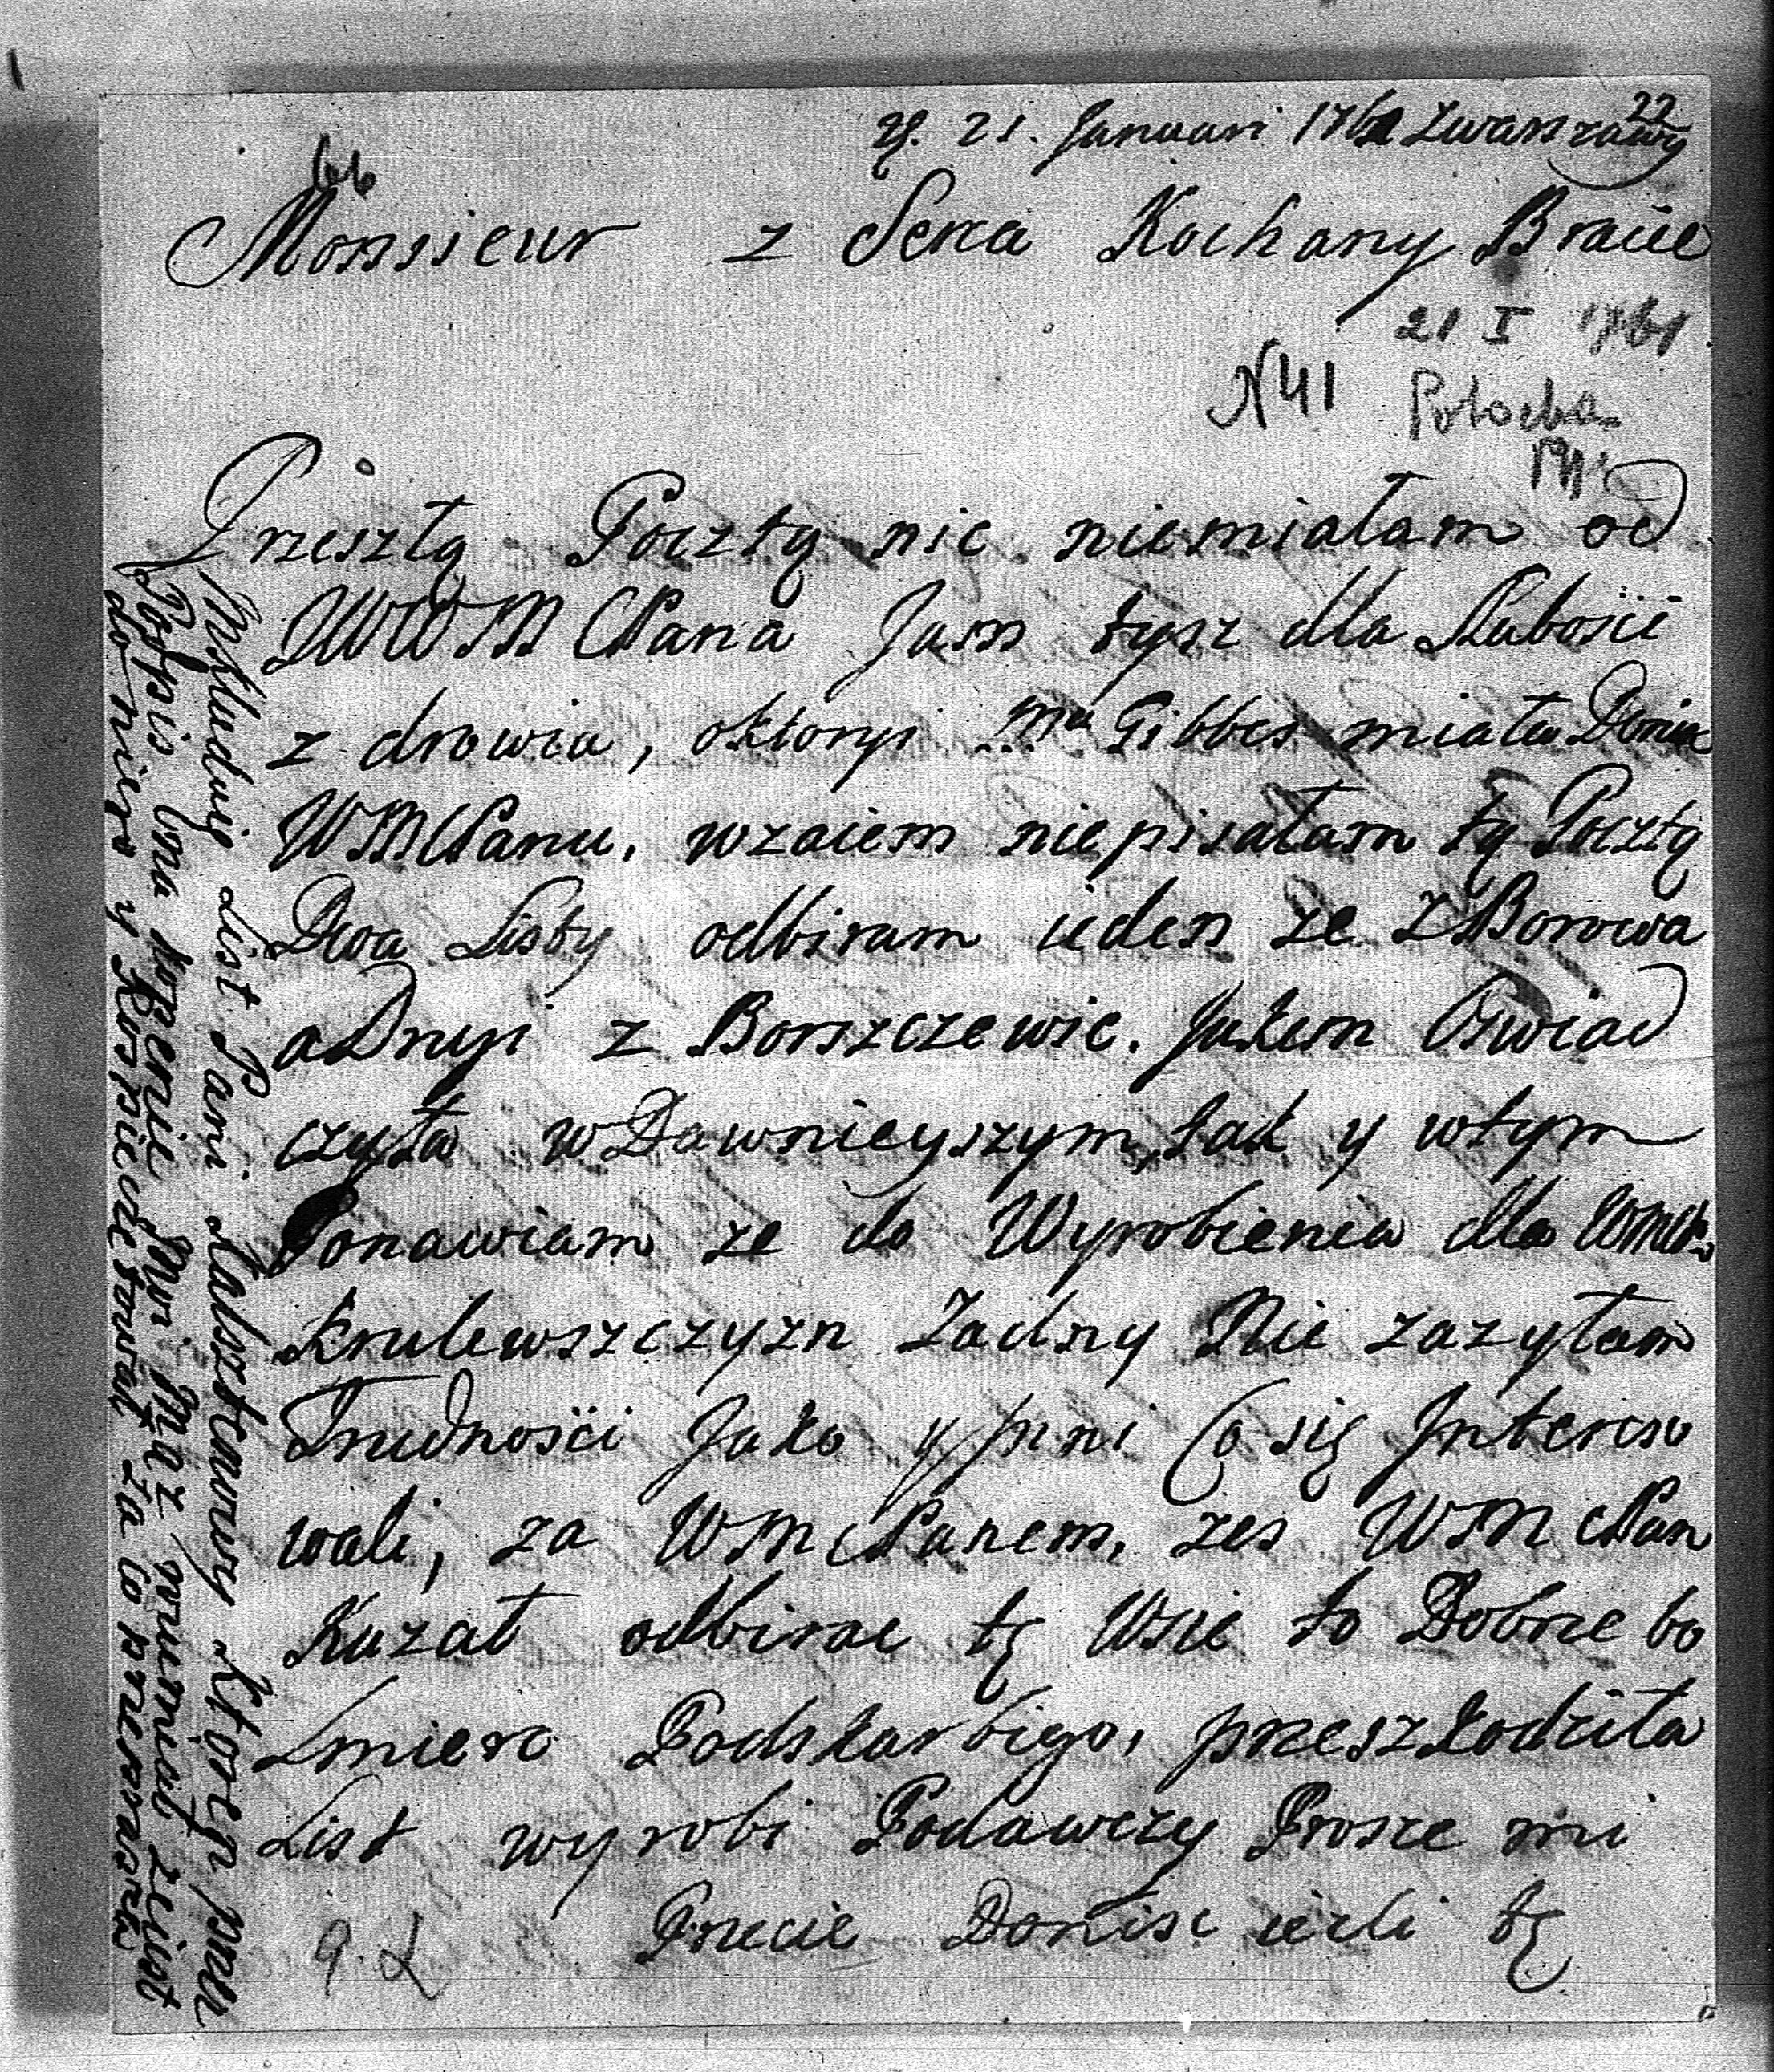 22
d. 21. Januari 1761 zwarszawy
66
Monssieur z Serca Kochany Bracie
21 I 1761
N 41 Potocka
Przeszłą Pocztą nic niemiałam od
WWM Pana Jam tysz dla Słabosci
zdrowia, oktoryi Ma Gibbes miała Donisc
WMPanu, wzaiem niepisałam tą Pocztą
Dwa Listy odbiram ieden ze Zborowa
aDrugi z Borszczewic. Jakem Oswiad
czyła wDawnieyszym, tak y wtym
Ponawiam ze do Wyrobienia dla
Krulewszczyzn Zadny Nie zazyłam
Trudnosci Jako y inni Co się Intereso
wali, za WMPanem, zes WMPan
Kazał odbirac tę Wsie to Dobrze bo
Smierc Podskarbiego, przeszkodziła
List wyrobi Podawczy Prosze mi
Przecie Donisc iezli tę
9. L
List Pani ktorey przez
Podpis Mąz ze iest
do niero y za to